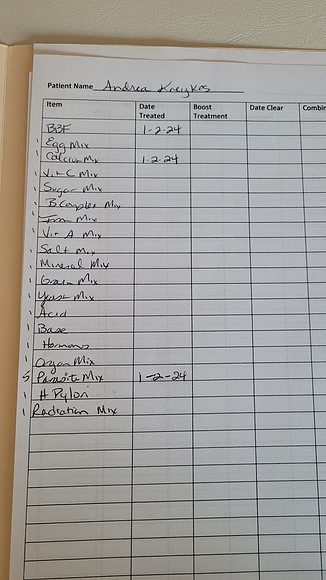 Patient Name Andrea Kneykos
Item Date Treated Boost Treatment Date Clear Combin
BBF 1-2-24
Egg Mix
Calcium Mix 1-2-24
Vit C Mix
Sugar Mix
B Complex Mix
Iron Mix
Vit A Mix
Salt Mix
Mineral Mix
Grain Mix
Yeast Mix
Acid
Base
Hormons
Organ Mix
5 Parasite Mix 1-2-24
1 H Pylori
1 Radiation Mix